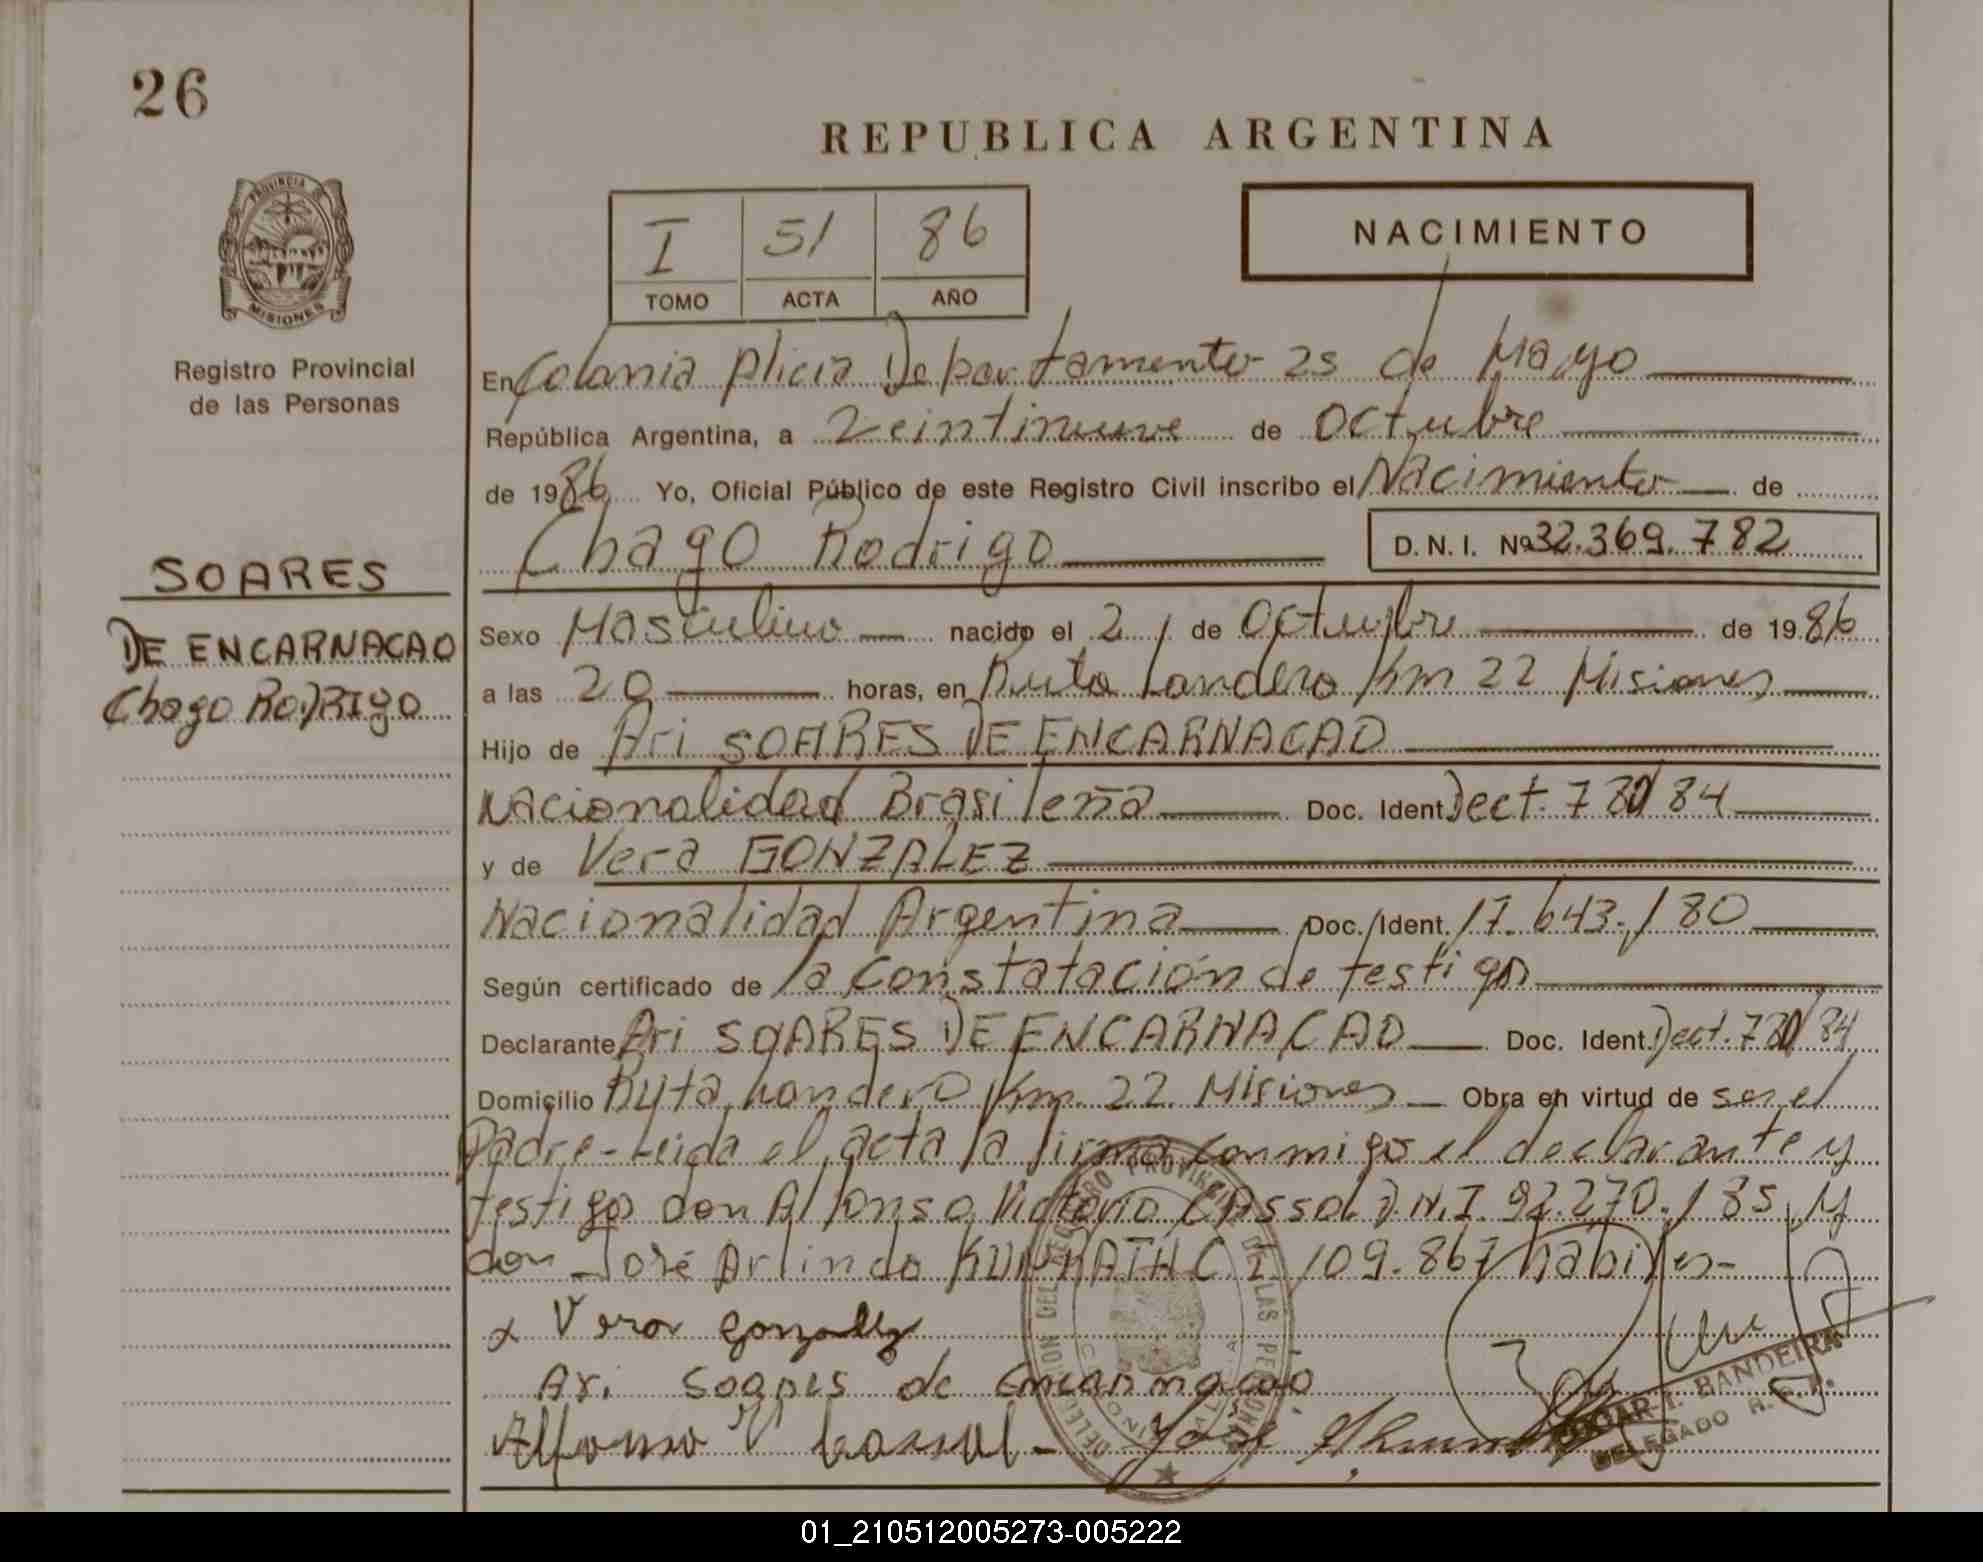 26
REPUBLICA ARGENTINA
PROVINCIA DE
MISIONES
Registro Provincial
de las Personas
I 51 86
TOMO ACTA AÑO
NACIMIENTO
En Colonia Alicia Departamento 25 de Mayo
República Argentina, a Veintinueve de Octubre
de 1986 Yo, Oficial Público de este Registro Civil inscribo el Nacimiento de
Chago Rodrigo D.N.I. Nº 32.369.782
SOARES
DE ENCARNACAO
Chago RODRIgo
Sexo Masculino nacido el 21 de Octubre de 1986
a las 20 horas, en Ruta Londero Km 22 Misiones
Hijo de Ari SOARES DE ENCARNACAO
Nacionalidad Brasileña Doc. Ident. Dect. 780/84
y de Vera GONZALEZ
Nacionalidad Argentina Doc. Ident. 17.643.180
Según certificado de la Constatación de testigos
Declarante Ari SOARES DE ENCARNACAO Doc. Ident. Dect. 780/84
Domicilio Ruta Londero Km. 22 Misiones Obra en virtud de ser el
Padre - Leida el acta la firma conmigo el declarante y
testigos don Alfonso Victorio CASSOL D.N.I. 92.270.185 y
don José Arlindo KUNRATH C.I. 109.867 habiles-
x Vera gonzalez
Ari Soares de Encarnacao
Alfonso V Cassol - José
DELEGACION DEL REGISTRO PROVINCIAL DE LAS PERSONAS
COLONIA ALICIA
EDGAR I. BANDEIRA
DELEGADO R.P.P.
01_210512005273-005222